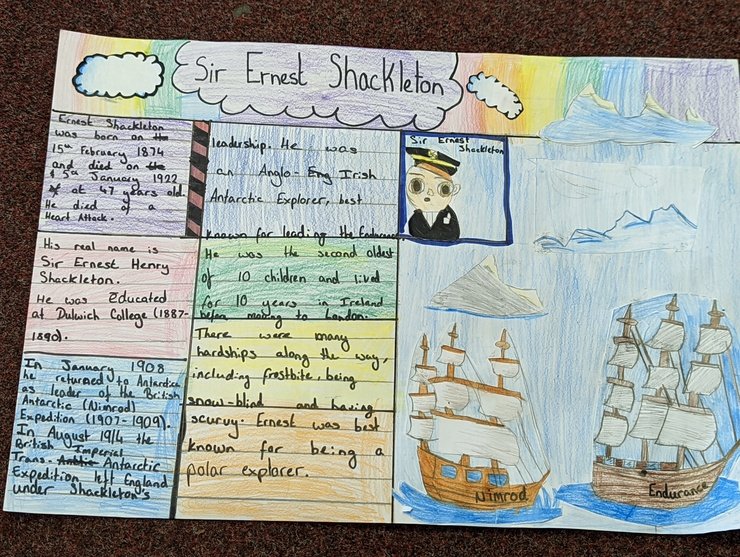 Sir Ernest Shackleton
Ernest Shackleton
was born on the
15th February 1874
and died on the
5th January 1922
at 47 years old.
He died of a
Heart Attack.
His real name is
Sir Ernest Henry
Shackleton.
He was Educated
at Dulwich College (1887-
1890).
In January 1908
he returned to Antarctica
as leader of the British
Antarctic (Nimrod)
Expedition (1907-1909).
In August 1914 the
British Imperial
Trans- Antarctic
Expedition left England
under Shackleton's
leadership. He was
an Anglo- Eng Irish
Antarctic Explorer, best
known for leading the Endurance
He was the second oldest
of 10 children and lived
for 10 years in Ireland
before moving to London.
There were many
hardships along the way,
including frostbite, being
snow-blind and having
scurvy. Ernest was best
known for being a
polar explorer.
Sir Ernest
Shackleton
Nimrod
Endurance